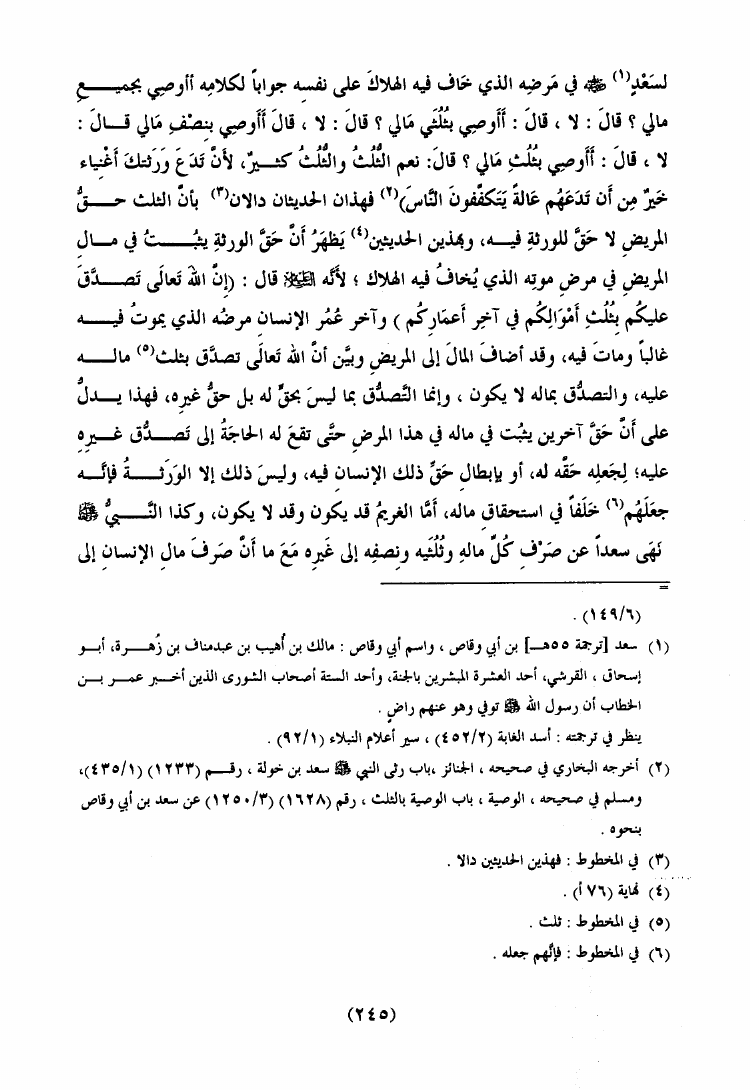 لسَعْدٍ(١) ﷺ في مَرضِه الذي خَاف فيه الهلاكَ على نفسِه جواباً لكلامِه أأوصِي بجميـــع
مالي ؟ قالَ : لا ، قالَ : أَأوصِي بثُلُثَي مَالي ؟ قالَ : لا ، قالَ أَأوصِي بنصْفِ مَالي قــالَ :
لا ، قالَ : أَأوصِي بثُلثِ مَالي ؟ قالَ: نعم الثُّلثُ والثُّلثُ كثـيرٌ، لأنْ تدَعَ وَرَثتكَ أغْنياء
خَيرٌ مِن أن تدَعَهُم عَالةً يَتكفَّفونَ النَّاسَ)(٢) فهذان الحديثان دالان(٣) بأنَّ الثلث حــقُّ
المريضِ لا حَقَّ للورثةِ فيـه، وبهذين الحديثين(٤) يَظهَرُ أنَّ حَقَّ الورثةِ يثبُــتُ في مــال
المريضِ في مرضِ موتِه الذي يُخافُ فيه الهلاك ؛ لأنَّه العَلِيْهِلا قال : (إنَّ اللهَ تَعالَى تَصــدَّقَ
عليكُم بثُلثِ أمْوَالِكُم في آخرِ أعمَارِكُم ) وآخر عُمُر الإنسانِ مرضُه الذي يموتُ فيـــه
غالباً وماتَ فيه، وقد أضافَ المالَ إلى المريضِ وبيَّن أنَّ الله تَعالَى تصدَّق بثلث(٥) مالــه
عليه، والتصدُّق بمالِه لا يكون ، وإنما التَّصدُّق بما ليسَ بحقٍّ له بل حقُّ غيرِه، فهذا يــدلُّ
على أنَّ حَقَّ آخرين يثبُت في مالِه في هذا المرضِ حتَّى تقعَ له الحاجَةُ إلى تَصــدُّق غــيرِه
عليه؛ لِجَعلِه حقَّه له، أو بإبطالِ حَقِّ ذلك الإنسانِ فيه، وليسَ ذلك إلا الوَرَثــةُ فإنَّــه
جعَلَهُم(٦) خَلَفاً في استحقاقِ مالِه، أمَّا الغريمُ قد يكون وقد لا يكون، وكذا النَّــبيُّ ﷺ
نَهَى سعداً عن صَرْفِ كُلِّ مالهِ وثُلُثَيه ونصفِه إلى غَيرِه مَعَ ما أنَّ صَرفَ مالِ الإنسانِ إلى
=
(١٤٩/٦) .
(١) سعد [ترجمة ٥٥هـ] بن أبي وقاص ، واسم أبي وقاص : مالك بن أُهيب بن عبدمناف بن زُهــرة، أبــو
إسحاق ، القرشي، أحد العشرة المبشرين بالجنة، وأحد الستة أصحاب الشورى الذين أخــبر عمــر بــن
الخطاب أن رسول الله ﷺ توفي وهو عنهم راضٍ .
ينظر في ترجمته : أسد الغابة (٤٥٢/٢) ، سير أعلام النبلاء (٩٢/١) .
(٢) أخرجه البخاري في صحيحه ، الجنائز ،باب رثى النبي ﷺ سعد بن خولة ، رقــم (١٢٣٣) (٤٣٥/١)،
ومسلم في صحيحه ، الوصية ، باب الوصية بالثلث ، رقم (١٦٢٨) (١٢٥٠/٣) عن سعد بن أبي وقاص
بنحوه .
(٣) في المخطوط : فهذين الحديثين دالا .
(٤) نهاية (٧٦ أ) .
(٥) في المخطوط : ثلث .
(٦) في المخطوط : فإنَّهم جعله .
(٢٤٥)